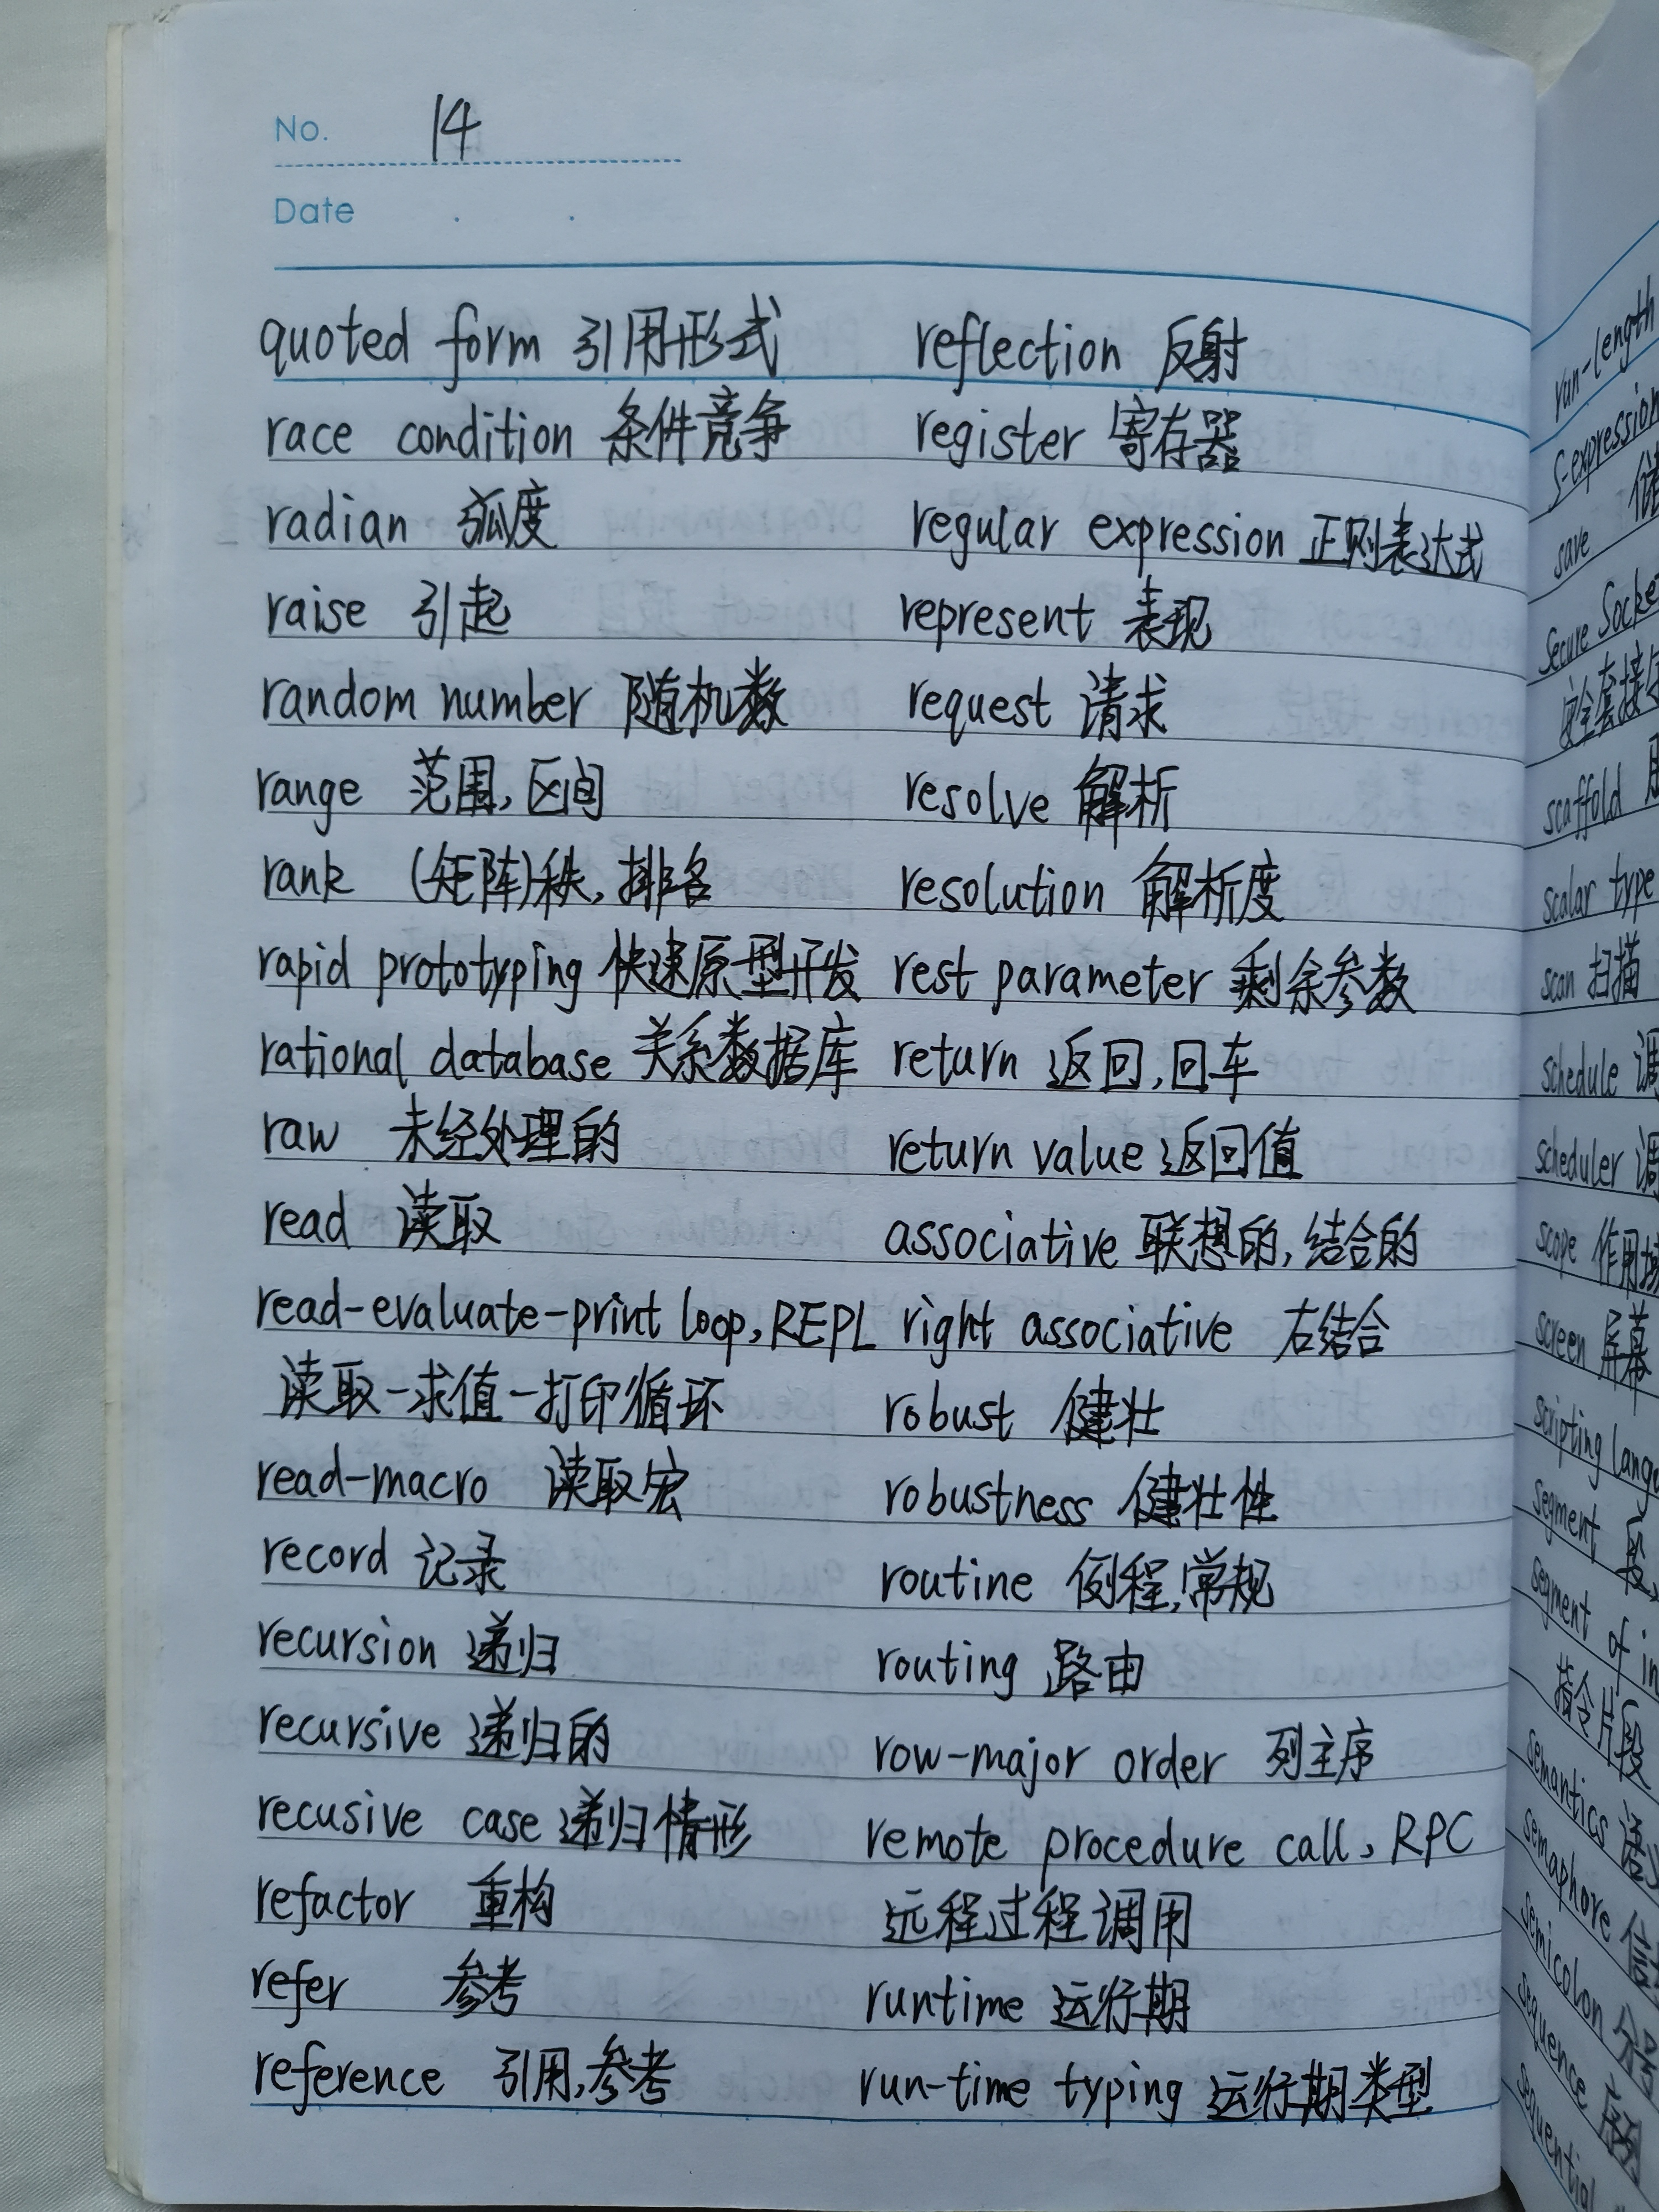 No. 14
Date
quoted form 引用形式
race condition 条件竞争
radian 弧度
raise 引起
random number 随机数
range 范围,区间
rank (矩阵)秩,排名
rapid prototyping 快速原型开发
rational database 关系数据库
raw 未经处理的
read 读取
read-evaluate-print loop, REPL
读取-求值-打印循环
read-macro 读取宏
record 记录
recursion 递归
recursive 递归的
recusive case 递归情形
refactor 重构
refer 参考
reference 引用,参考
reflection 反射
register 寄存器
regular expression 正则表达式
represent 表现
request 请求
resolve 解析
resolution 解析度
rest parameter 剩余参数
return 返回,回车
return value 返回值
associative 联想的,结合的
right associative 右结合
robust 健壮
robustness 健壮性
routine 例程,常规
routing 路由
row-major order 列主序
remote procedure call, RPC
远程过程调用
runtime 运行期
run-time typing 运行期类型
run-length
S-expression
save 储
Secure Socket
安全套接
scaffold
scalar type
scan 扫描
schedule 调
scheduler 调
scope 作用域
screen 屏幕
scripting lang
segment 段
segment of in
指令片段
semantics 语
semaphore 信
semicolon 分号
sequence 序列
sequential